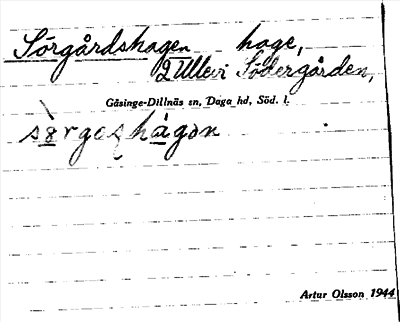 Sörgårdshagen hage,
2 Ullevi Södergården,
Gåsinge-Dillnäs sn, Daga hd, Söd. l.
Artur Olsson 1944